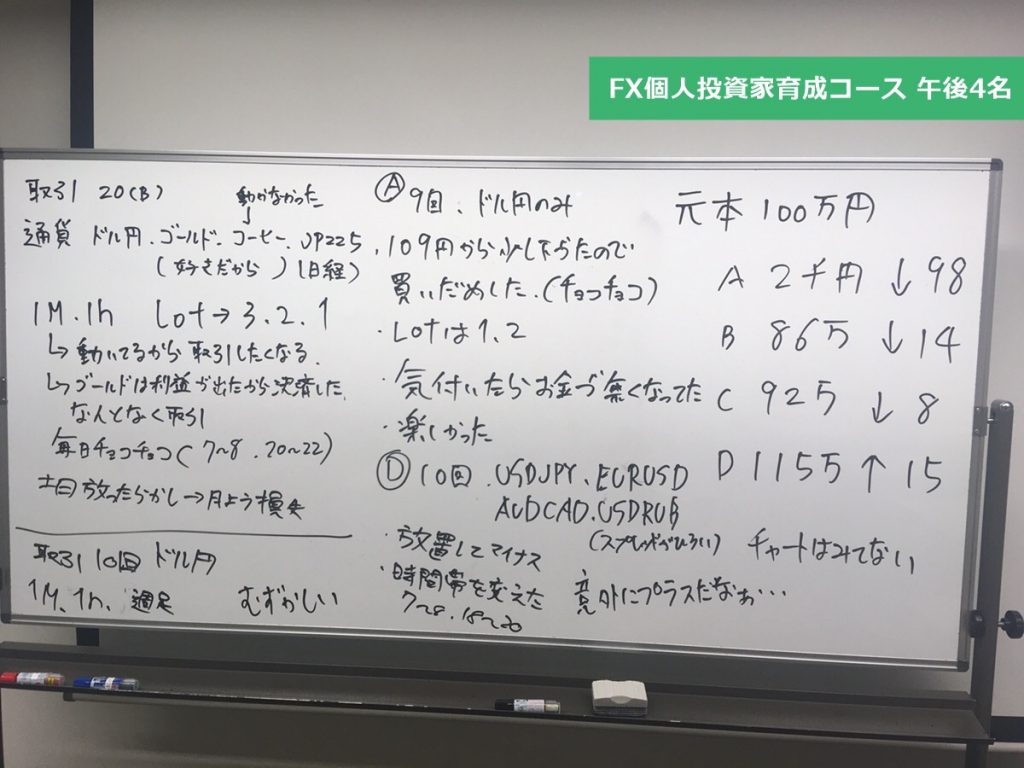 FX個人投資家育成コース 午後4名
取引 20(B)
動かなかった
↓
通貨 ドル円.ゴールド.コーヒー.JP225
(好きだから) (日経)
1M.1h Lot→3.2.1
↳動いてるから取引したくなる.
↳ゴールドは利益が出たから決済した.
なんとなく取引
毎日チョコチョコ(7〜8.20〜22)
土日放ったらかし→月よう損失
取引10回 ドル円
1M.1h.週足 むずかしい
Ⓐ9回.ドル円のみ
.109円から少し下がったので
買いだめした.(チョコチョコ)
・Lotは1.2
・気付いたらお金が無くなってた
・楽しかった
Ⓓ10回.USDJPY.EURUSD
AUDCAD.USDRUB
(スプレッドがひろい)
・放置してマイナス
・時間帯を変えた
7〜8.18〜20
元本100万円
A 2千円 ↓98
B 86万 ↓14
C 925 ↓8
D 115万 ↑15
チャートはみてない
意外にプラスだなぁ…